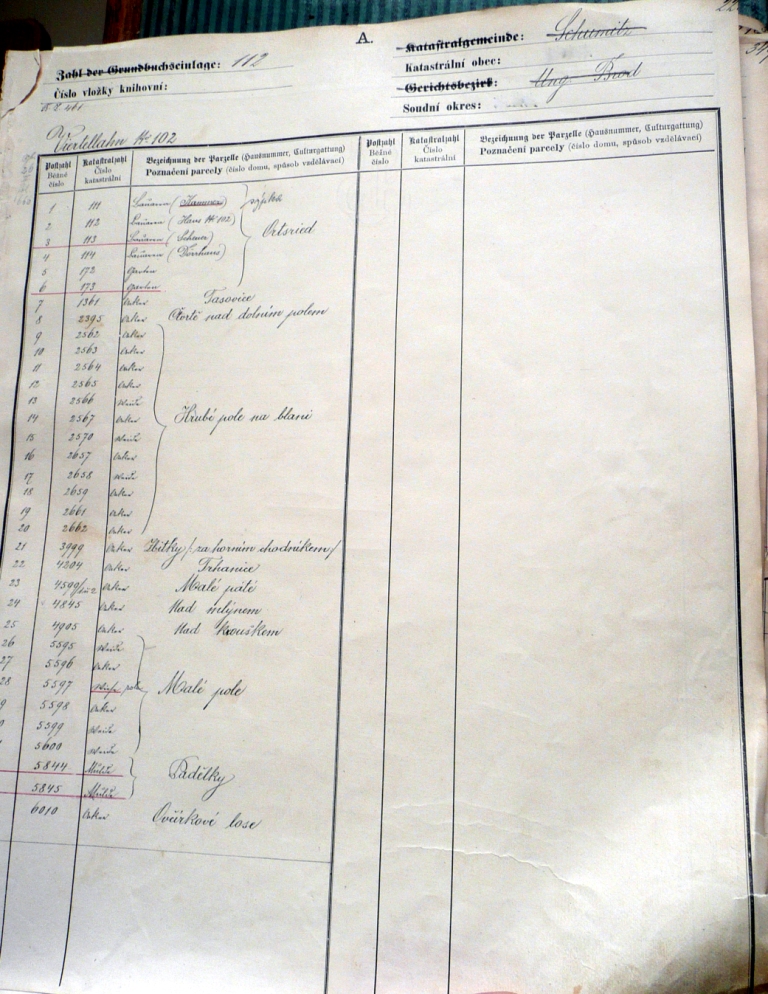 A.
Zahl der Grundbuchseinlage: 112
Číslo vložky knihovní:
Katastralgemeinde: Schumitz
Katastrální obec:
Gerichtsbezirk: Ung. Brod
Soudní okres:
Viertellahn № 102
Postzahl Katastralzahl Bezeichnung der Parzelle (Hausnummer, Culturgattung)
Běžné číslo Číslo katastrální Poznačení parcely (číslo domu, spůsob vzdělávací)
Postzahl Katastralzahl Bezeichnung der Parzelle (Hausnummer, Culturgattung)
Běžné číslo Číslo katastrální Poznačení parcely (číslo domu, spůsob vzdělávací)
1 111 Bauarea (Kammer)
2 112 Bauarea (Haus № 102)
3 113 Bauarea (Scheuer) Ortsried
4 114 Bauarea (Dörrhaus)
5 172 Garten
6 173 Garten
7 1361 Acker Tasovice
8 2395 Acker Čtvrtě nad dolním polem
9 2562 Acker
10 2563 Acker
11 2564 Acker
12 2565 Acker
13 2566 Weide
14 2567 Acker Hrubé pole na blani
15 2570 Weide
16 2657 Acker
17 2658 Weide
18 2659 Acker
19 2661 Acker
20 2662 Acker
21 3999 Acker Zbitky /za horním chodníkem/
22 4204 Acker Trhanice
23 4599 Acker Malé páté
24 4845 Acker Nad mlýnem
25 4905 Acker Nad kouskem
26 5595 Weide
27 5596 Acker
28 5597 Wiese Malé pole
9 5598 Acker
5599 Weide
5600 Weide
5844 Padělky
5845
6010 Acker Ovčírkové lose